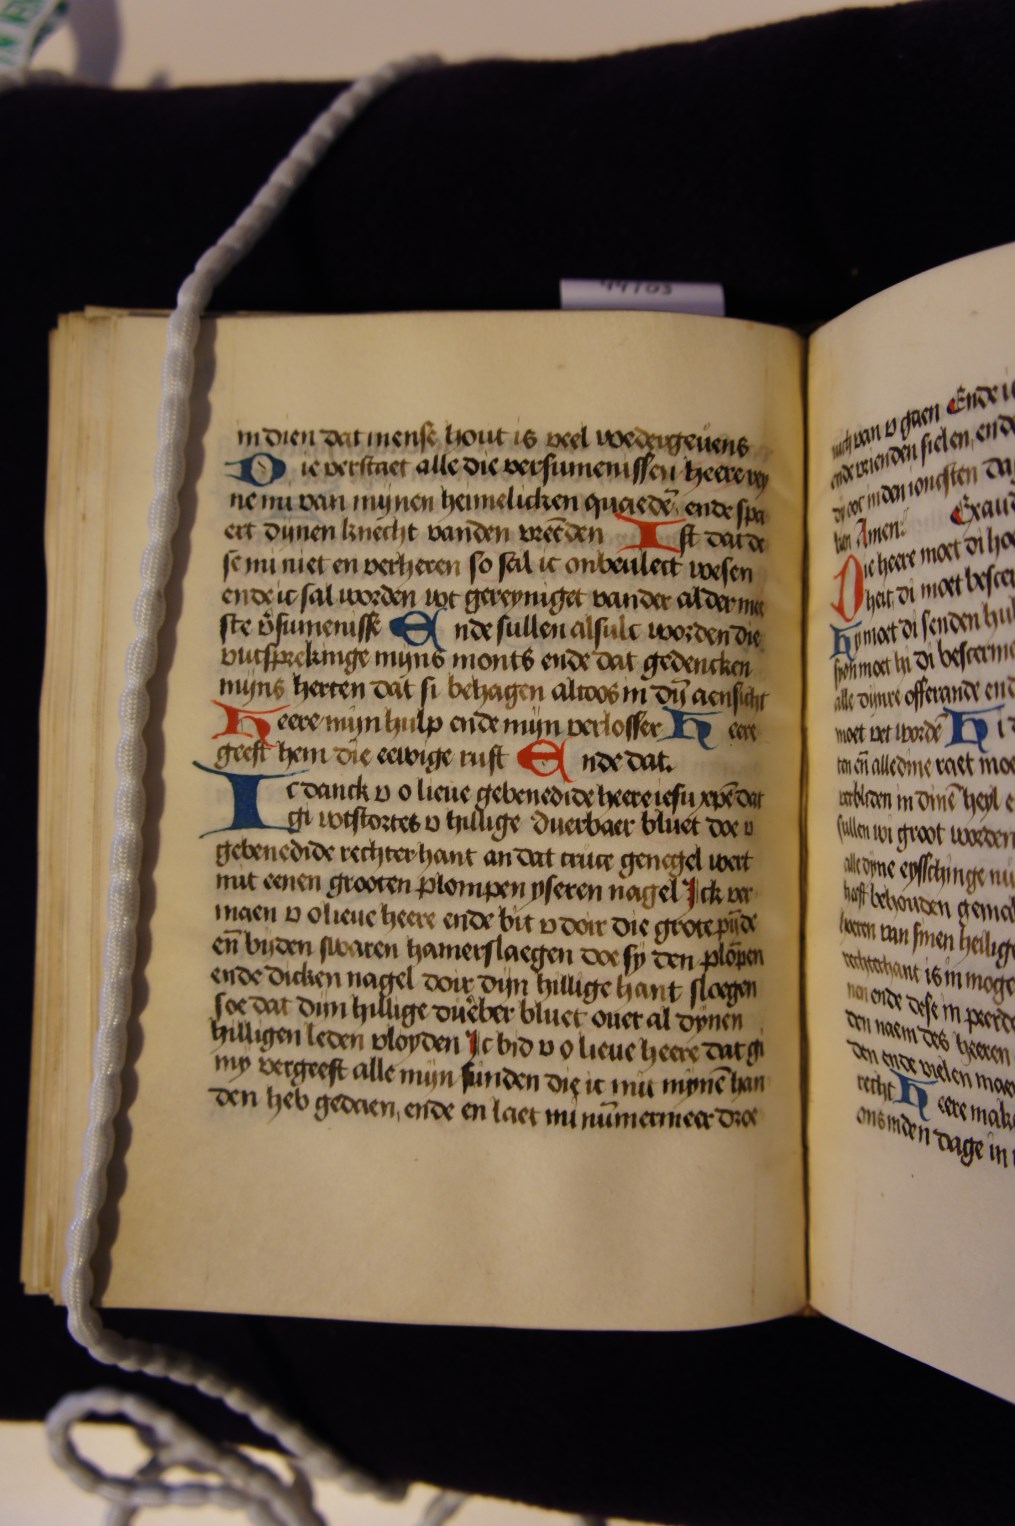 in dien dat mense hout is veel wedergeuens
Die verstaet alle die versumenissen heere rey
ne mi van mijnen heimelicken quaedē, ende spa
ert dijnen knecht vanden vreēden Ist dat de
se mi niet en verheren so sal ic onbeulect wesen
ende ic sal worden wt gereyniget vander alder mee
ste v̄sumenisse Ende sullen alsulc worden die
wtsprekinge mijns monts ende dat gedencken
mijns herten dat si behagen altoos in dijn̄ aensicht
Heere mijn hulp ende mijn verlosser Heere
geeft hem die eewige rust Ende dat.
Ic danck v o lieue gebenedide heere iesu xpē dat
gi wtstortes v hillige duerbaer bluet doe v
gebenedide rechterhant an dat cruce genegel wert
mit eenen grooten plompen yseren nagel Ick ver
maen v o lieue heere ende bit v doir die grote pijde
en̄ bijden swaren hamerslaegen doe sy den plōpen
ende dicken nagel doir dijn hillige hant sloegen
soe dat dijn hillige duerber bluet ouer al dijnen
hilligen leden vloyden Ic bid v o lieue heere dat gi
my vergeeft alle mijn sunden die ic mit mijnē han
den heb gedaen, ende en laet mi nūmermeer droe
van v gaen Ende i
ende vrienden sielen, ende
in den ioncsten da
Amen. Exaud
Die heere moet di ho
heit, di moet bescer
Hy moet di senden hul
sion moet hi di bescerme
alle dijnre offerande end
moet vet wordē Hi d
ten en̄ alle dine raet moe
verbliden in dinē heyl e
sullen wi groot worden
alle dyne eysschinge nu
heeft behouden gema
heeren van sinen heilige
rechterhant is in moge
nen ende dese in peerde
den naem des heeren
den ende vielen maer
recht Heere make
ons inden dage in